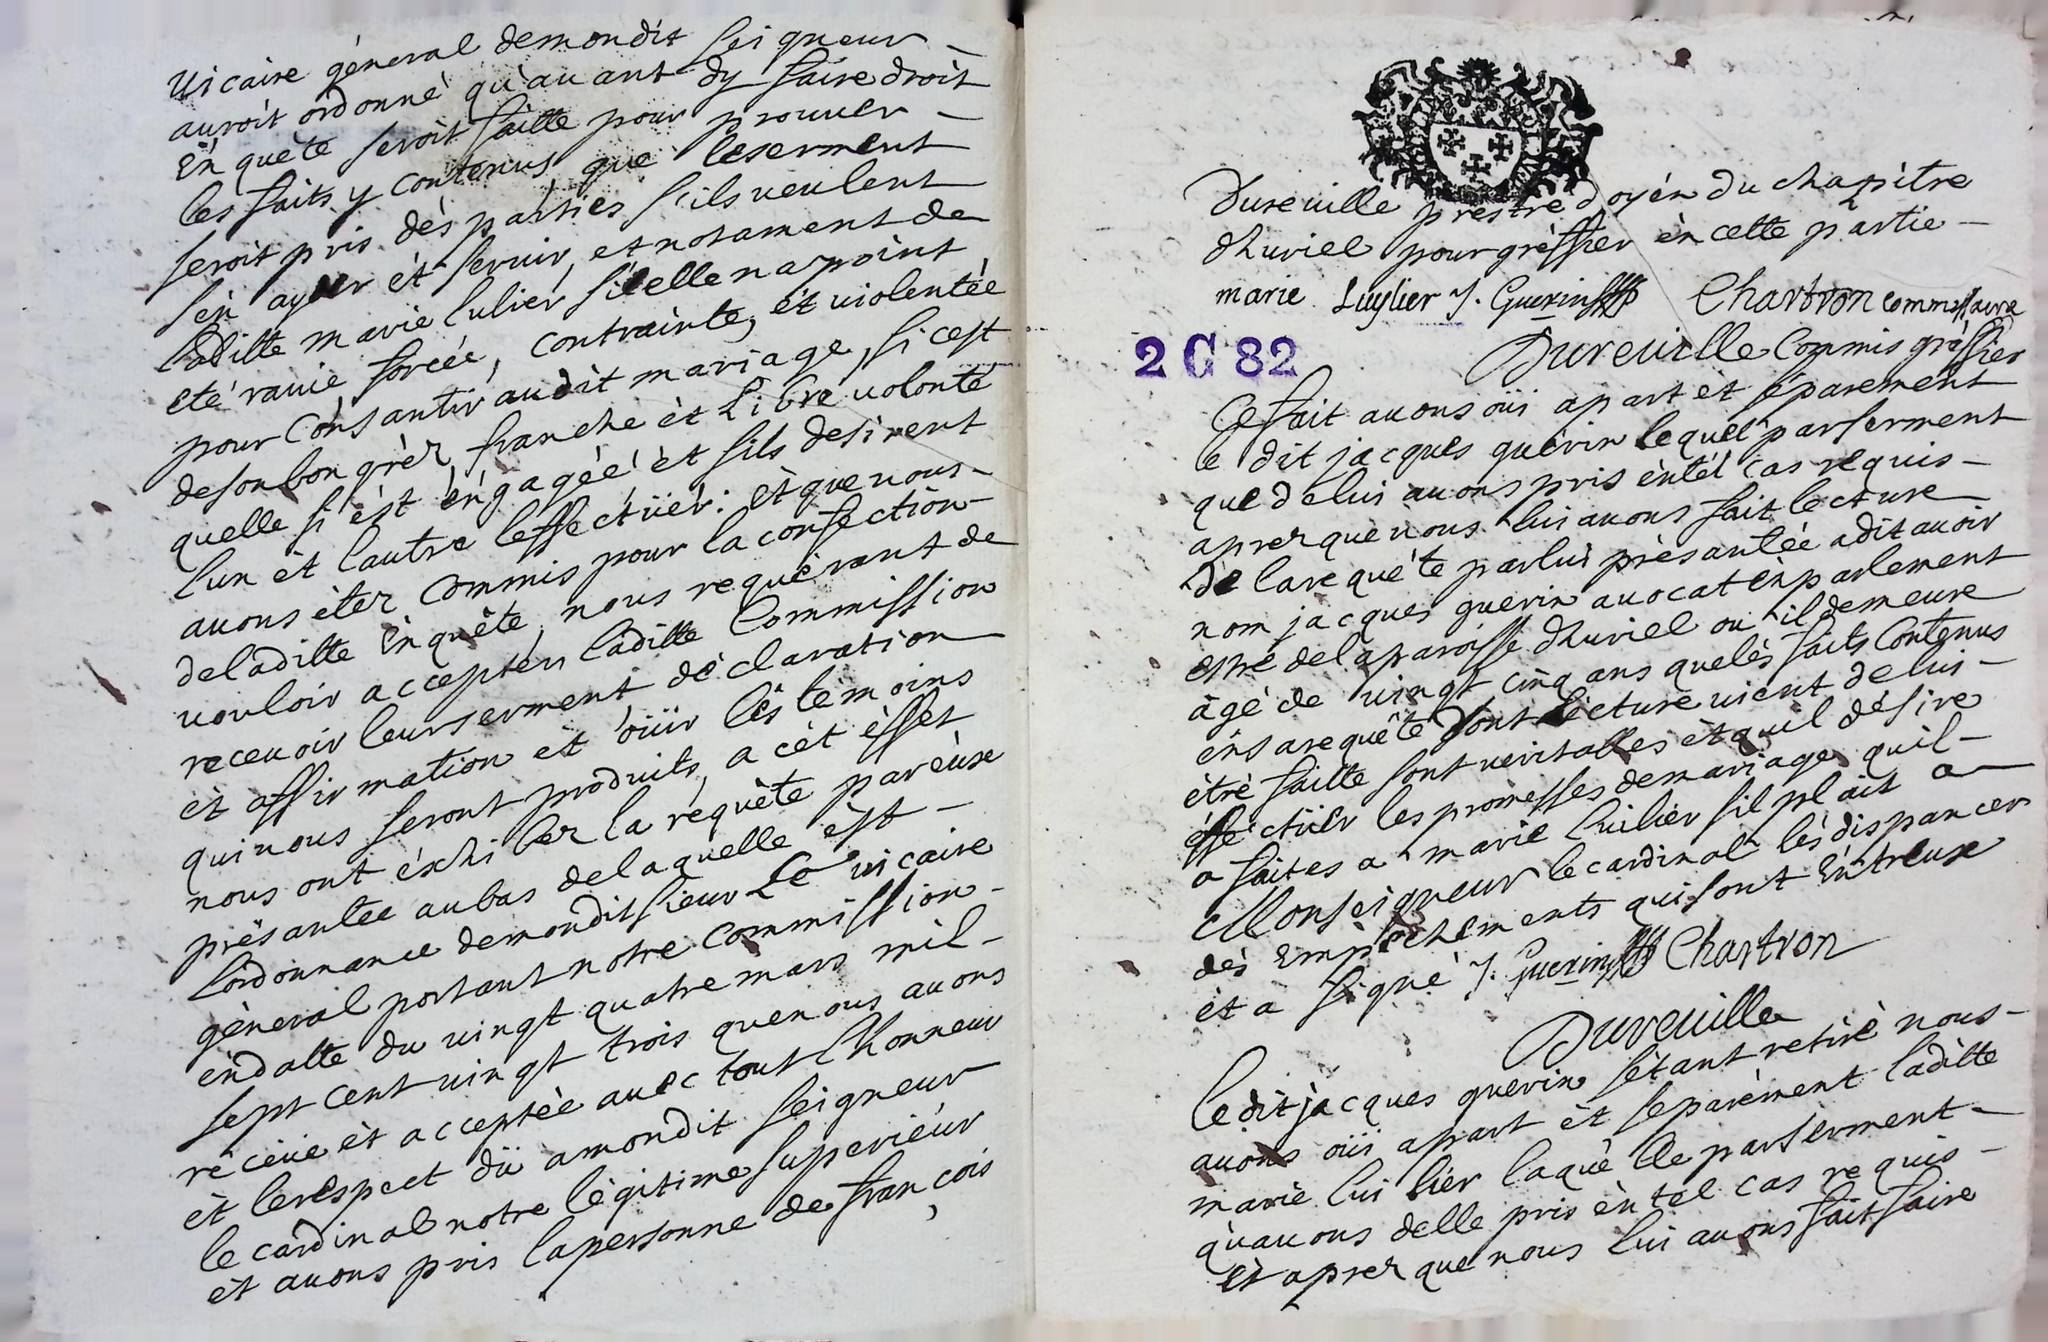 Vicaire géneral demondit seigneur -
auroit ordonné qu'auant dy faire droit
Enquète seroit faitte pour prouuer -
les faits y contenus que leserment
seroit pris dès parties s'ils ueulent
s'èn ayder èt seruir, et notament de
Laditte marie Lulier, si elle na point
eté rauie forcée, contrainte, èt uiolentée
pour consantir audit mariage, si cest
deson bon grèz franche èt Libre uolonté
quelle si èst èngagéé èt sils desirent
Lun èt lautre leffectüer: èt que nous -
auons èter commis pour la confection -
deladitte Enquète, nous requèrant de
uouloir accepter laditte Commission
receuoir leurserment dèclaration
èt affirmation et öüir lès tèmoins
qui nous seront produits, a cèt èffet
nous ont éxhiber la réquète par eüx
prèsantée aubas delaquelle èst -
Lordonnance demondit sieur Le uicaire
gèneral portant notre commission -
èndatte du uingt quatre mars mil -
sept cent uingt trois quenous auons
rècèüe èt acceptèe auec tout L'honneur
èt lerespect dü amondit seigneur
le cardinal notre lègitime superiéur
èt auons pris lapersonne de francois
Dureuille prestre doyén du chapitre
dhuriel pour grèffier èn cette partie -
marie Luylier J. Guerin Chartron commissaire
Dureuille Commis grèffier
2 G 82
Ce fait auons öüi apart èt séparement
le dit jacques guérin lequel parserment
que delui auons pris èntél cas requis -
aprez que nous lui auons fait lecture
de la requéte parlui prèsantéé adit auoir
nom jacques guerin auocat ènparlement
estre delaparoisse dhuriel ou il demeure
àgé de uingt cinq ans quelès faits Contenus
ènsarequête dont lècture uient delui -
ètré faitte sont ueritables èt quil désire
éffèctüer les promesses demariage quil -
a faites a marie Luilier sil plait a
Monseigneur le cardinal lès dispancer
dès Empèchements qui sont Entreux
èt a signé J. Guerin Chartron
Dureuille
Le dit jacques guerin sètant retirè nous -
auons öüi apart èt separèment laditte
marie Lui lier laquèlle parserment -
qu'auons delle pris èn tel cas requis -
èt aprez que nous lui auons fait faire